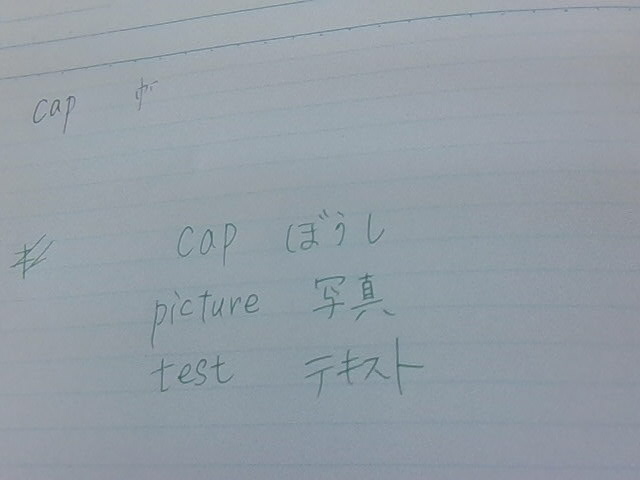 cap
cap ぼうし
picture 写真
test テキスト